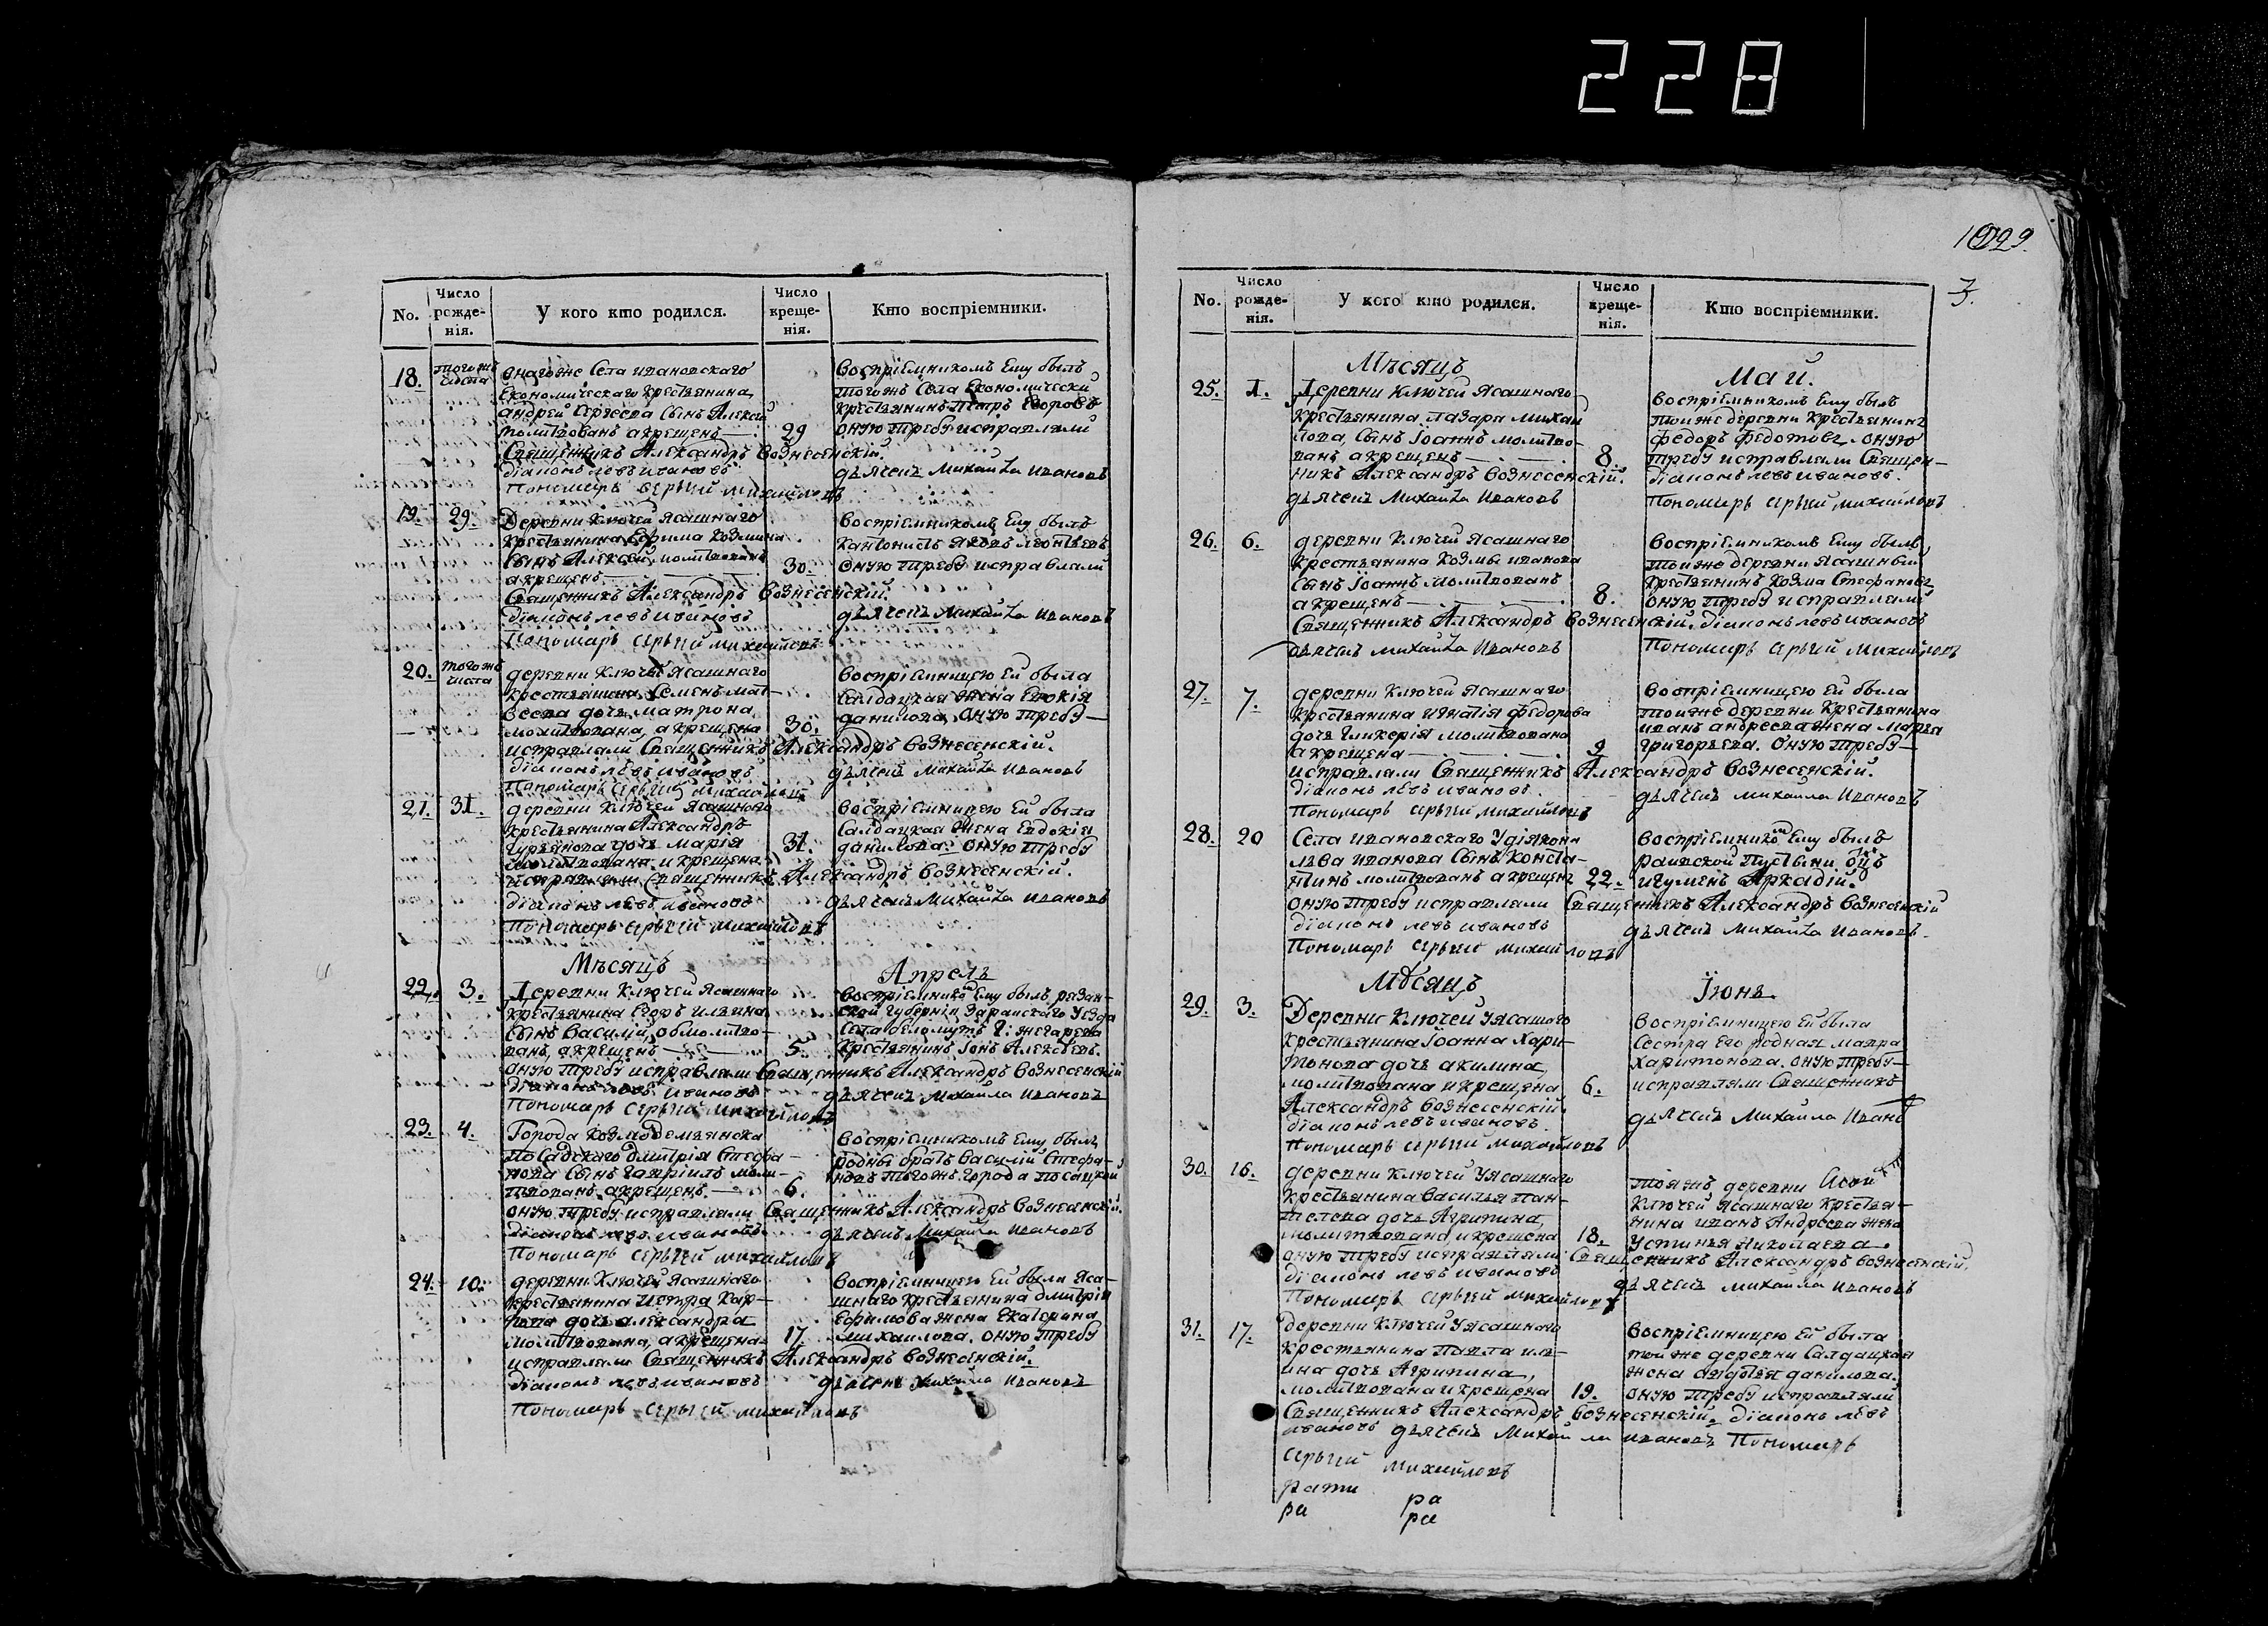 228
1029.
3.
No.
Число рожденія.
У кого кто родился.
Число крещенія.
Кто воспріемники.
18.
тогожъ числа
онагоже Села ивановскаго
Економическаго крестьянина
андрей Сергеева Сынъ Алексей
молитвованъ а крещенъ —
29
Священникъ Александръ Вознесенскій.
діаконъ левъ ивановъ
Пономарь Сергѣй михайловъ
воспріемникомъ Ему былъ
тогожъ Села Економически
крестьянинъ Петръ Егоровъ
оную требу исправляли
дьячекъ Михайла Ивановъ
19.
29.
Деревни Ключей ясашнаго
крестьянина Ефима Козмина
Сынъ Алексей, молитвованъ
а крещенъ —
30.
Священникъ Александръ Вознесенскій.
діаконъ левъ ивановъ
Пономарь Сергѣй михайловъ
воспріемникомъ Ему былъ
кантонистъ яковъ леонтьевъ
оную требу исправляли
дьячекъ Михайла Ивановъ
20.
тогожъ числа
деревни Ключей ясашнаго
крестьянина Семенъ мат-
веева дочь матрона
молитвована, а крещена
30.
исправляли Священникъ Александръ Вознесенскій.
діаконъ левъ ивановъ
Пономарь Сергѣй михайловъ
воспріемницею Ей была
Салдацкая жена Евдокія
данилова, оную требу —
дьячекъ Михайла Ивановъ
21.
31.
деревни Ключей ясашнаго
крестьянина Александръ
Гурьянова дочь марія
молитвована и крещена
31.
исправляли Священникъ Александръ Вознесенскій.
діаконъ левъ ивановъ
Пономарь Сергѣй михайловъ
воспріемницею Ей была
Салдацкая жена Евдокія
данилова. оную требу
дьячекъ Михайла Ивановъ
Мѣсяцъ
Апрель
22.
3.
Деревни Ключей ясашнаго
крестьянина Егоръ ильина
Сынъ Василій, обмолитво-
ванъ, а крещенъ —
5.
оную требу исправляли Священникъ Александръ Вознесенскій
діаконъ левъ ивановъ
Пономарь Сергѣй михайловъ
воспріемникомъ Ему былъ резан-
ской губерніи Зарайскаго уезда
Села беломутъ
крестьянинъ Алексеевъ.
дьячекъ Михайла Ивановъ
23.
4.
Города Козмодемьянска
посадскаго дмитрія Стефа-
нова Сынъ Гавріилъ моли-
твованъ а крещенъ —
6.
оную требу исправляли Священникъ Александръ Вознесенскій.
діаконъ левъ ивановъ
Пономарь Сергѣй михайловъ
воспріемникомъ Ему былъ
родны братъ василій Стефа-
новъ тогожъ города посацкой
дьячекъ Михайла Ивановъ
24.
10.
деревни Ключей ясашнаго
крестьянина Петра Кар-
пова дочь александра
молитвована, а крещена
17.
исправляли Священникъ Александръ Вознесенскій.
діаконъ левъ ивановъ
Пономарь Сергѣй михайловъ
воспріемницею Ей была яса-
шнаго крестьянина дмитрія
Ефимова жена Екатерина
михаилова. оную требу
дьячекъ Михайла Ивановъ
No.
Число рожденія.
У кого кто родился.
Число крещенія.
Кто воспріемники.
Мѣсяцъ
Май.
25.
1.
Деревни Ключей ясашнаго
крестьянина лазара михаи
лова, Сынъ Іоаннъ молитво-
ванъ а крещенъ —
8.
никъ Александръ Вознесенскій.
дьячекъ Михайла Ивановъ
воспріемникомъ Ему былъ
тойже деревни крестьянинъ
федоръ федотовъ. оную
требу исправляли Священ-
діаконъ левъ ивановъ.
Пономарь Сергѣй михайловъ
26.
6.
деревни Ключей ясашнаго
крестьянина Козмы иванова
Сынъ Іоаннъ молитвованъ
а крещенъ —
8.
Священникъ Александръ Вознесенскій. діаконъ левъ ивановъ
дьячекъ Михайла Ивановъ
воспріемникомъ Ему былъ
тойже деревни ясашный
крестьянинъ Козма Стефановъ
оную требу исправляли
Пономарь Сергѣй Михайловъ
27.
7.
деревни Ключей ясашнаго
крестьянина игнатія федорова
дочь гликерія молитвована
а крещена —
9
исправляли Священникъ Александръ Вознесенскій.
діаконъ левъ ивановъ.
Пономарь Сергѣй михайловъ
воспріемницею Ей была
тойже деревни крестьянина
иванъ андреева жена марѳа
григорьева. оную требу —
дьячекъ михайла Ивановъ
28.
20
Села ивановскаго У діякона
льва иванова Сынъ Конста-
нтинъ молитвованъ а крещенъ
22.
оную требу исправляли Священникъ Александръ Вознесенскій
діаконъ левъ ивановъ
Пономарь Сергѣй михайловъ
воспріемникомъ Ему былъ
раивской пустыни оцъ
игуменъ Аркадій.
дьячекъ Михайла Ивановъ.
Мѣсяцъ
Іюнь.
29.
3.
Деревни Ключей У ясашаго
крестьянина Іоанна Хари-
тонова дочь акилина,
молитвована и крещена
6.
Александръ Вознесенскій.
діаконъ левъ ивановъ.
Пономарь Сергѣй михайловъ
воспріемницею Ей была
Сестра Его родная мавра
харитонова. оную требу —
исправляли Священникъ
дьячекъ Михайла Ивано
30.
16.
деревни Ключей У ясашнаго
крестьянина василья Пан-
телева дочь Агрипина,
молитвована, и крещена
18.
оную требу исправляли Священникъ Александръ Вознесенскій.
діаконъ левъ ивановъ
Пономарь Сергѣй михайловъ
тояжъ деревни
Ключей ясашнаго крестья-
нина иванъ Андреева жена
Устинья николаева.
дьячекъ михайла Ивановъ
31.
17.
деревни Ключей У ясашнаго
крестьянина павла иль-
ина дочь Агрипина,
молитвована и крещена
19.
Священникъ Александръ Вознесенскій. діаконъ левъ
ивановъ дьячекъ Михайла ивановъ Пономарь
Сергѣй михайловъ
воспріемницею Ей была
тойже деревни Салдацкая
жена авдотья данилова.
оную требу исправляли
рати
ра
ра
ра